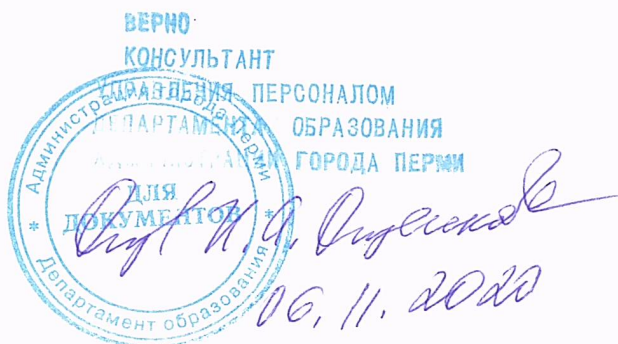 ВЕРНО
КОНСУЛЬТАНТ
УПРАВЛЕНИЯ ПЕРСОНАЛОМ
ДЕПАРТАМЕНТА ОБРАЗОВАНИЯ
АДМИНИСТРАЦИИ ГОРОДА ПЕРМИ
Администрация города Перми
ДЛЯ
ДОКУМЕНТОВ
* Департамент образования *
И.А.
06.11.2020